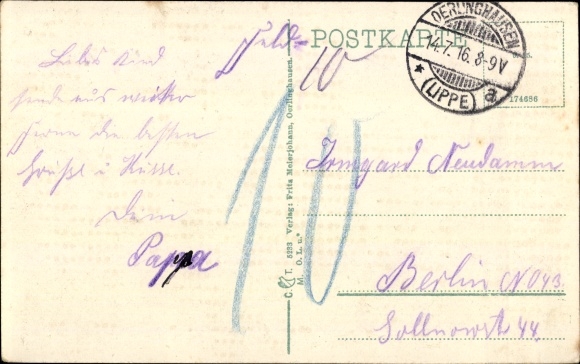 Feld=
POSTKARTE
OERLINGHAUSEN
14.7.16.8-9V
* (LIPPE) a
174686
10
Liebes Kind
sende aus weiter
Ferne die besten
Grüße u. Küsse.
Dein
Pappa
10
C. T. 5233 Verlag: Fritz Meierjohann, Oerlinghausen.
M. O. L. u.
Irmgard Neudamm
Berlin NO43.
Gollnowstr 44.